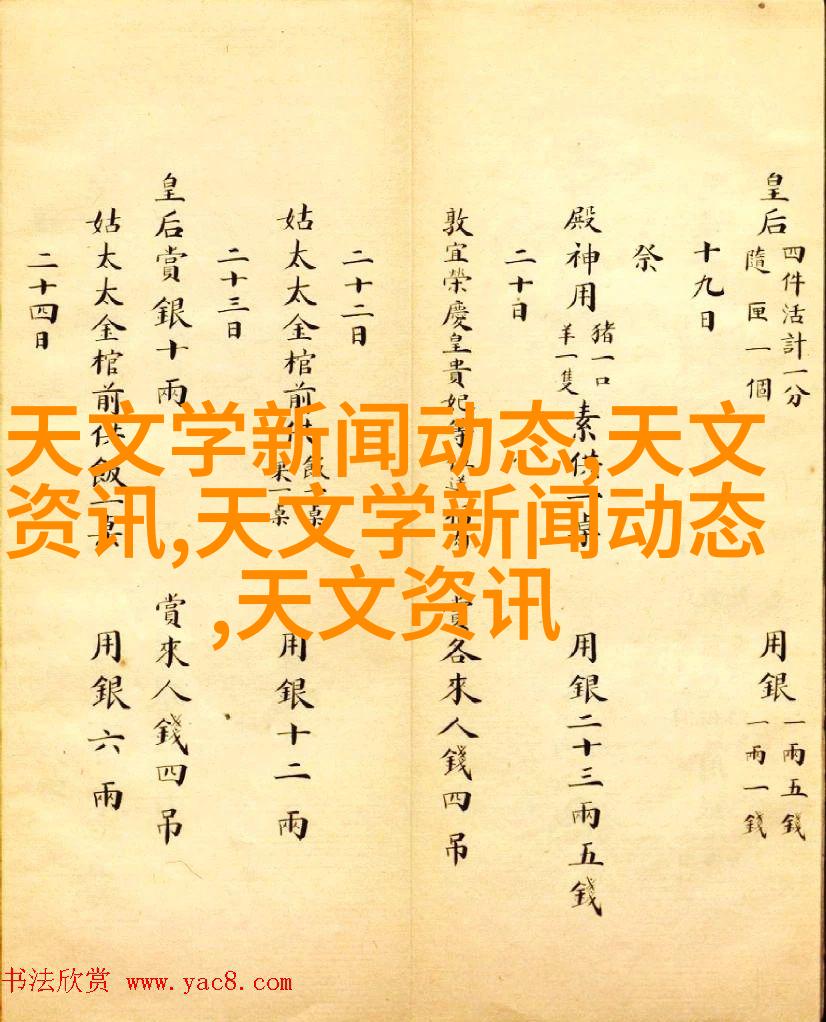 皇后 四件活計一分 隨匣一個 用銀 一兩五錢 一兩一錢
十九日
祭
殿神用 豬一口 羊一隻 素供一桌 用銀二十三兩五錢
二十日
敦宜榮慶皇貴妃 賞各來人錢四吊
二十二日
姑太太金棺前供飯一桌 果一桌 用銀十二兩
二十三日
皇后賞銀十兩 賞來人錢四吊
姑太太金棺前供飯一桌 用銀六兩
二十四日
天文学新闻动态,天文
资讯,天文学新闻动态
,天文资讯
书法欣赏 www.yac8.com